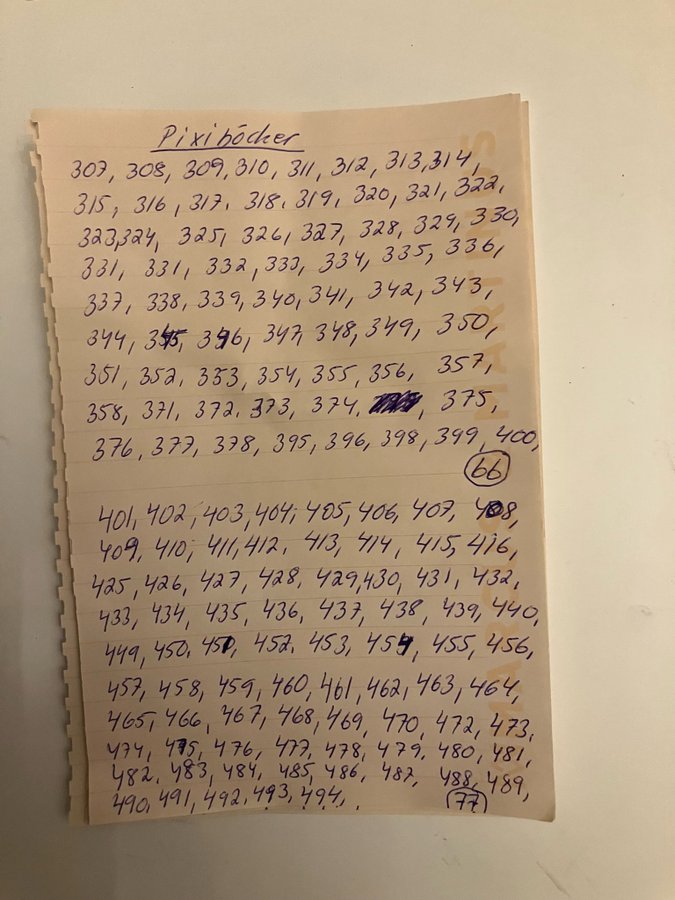 Pixiböcker
307, 308, 309, 310, 311, 312, 313, 314,
315, 316, 317, 318, 319, 320, 321, 322,
323, 324, 325, 326, 327, 328, 329, 330,
331, 331, 332, 333, 334, 335, 336,
337, 338, 339, 340, 341, 342, 343,
344, 345, 346, 347, 348, 349, 350,
351, 352, 353, 354, 355, 356, 357,
358, 371, 372, 373, 374, 375,
376, 377, 378, 395, 396, 398, 399, 400,
66
401, 402, 403, 404, 405, 406, 407, 408,
409, 410, 411, 412, 413, 414, 415, 416,
425, 426, 427, 428, 429, 430, 431, 432,
433, 434, 435, 436, 437, 438, 439, 440,
449, 450, 451, 452, 453, 454, 455, 456,
457, 458, 459, 460, 461, 462, 463, 464,
465, 466, 467, 468, 469, 470, 472, 473,
474, 475, 476, 477, 478, 479, 480, 481,
482, 483, 484, 485, 486, 487, 488, 489,
490, 491, 492, 493, 494,
77